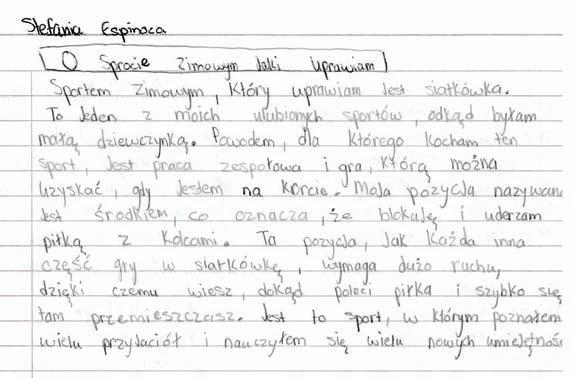 Stefania Espinoza
O Sporcie Zimowym Jaki uprawiam
Sportem zimowym, który uprawiam Jest siatkówka.
To Jeden z moich ulubionych sportów, odkąd byłam
małą dziewczynką. Powodem, dla którego kocham ten
sport, Jest praca zespołowa i gra, którą można
uzyskać, gdy Jestem na korcie. Moja pozycja nazywana
Jest środkiem, co oznacza, że blokuję i uderzam
piłką z kolcami. Ta pozycja, Jak każda inna
część gry w siatkówkę, wymaga dużo ruchu,
dzięki czemu wiesz, dokąd poleci piłka i szybko się
tam przemieszczasz. Jest to sport, w którym poznałem
wielu przyjaciół i nauczyłem się wielu nowych umiejętnośc